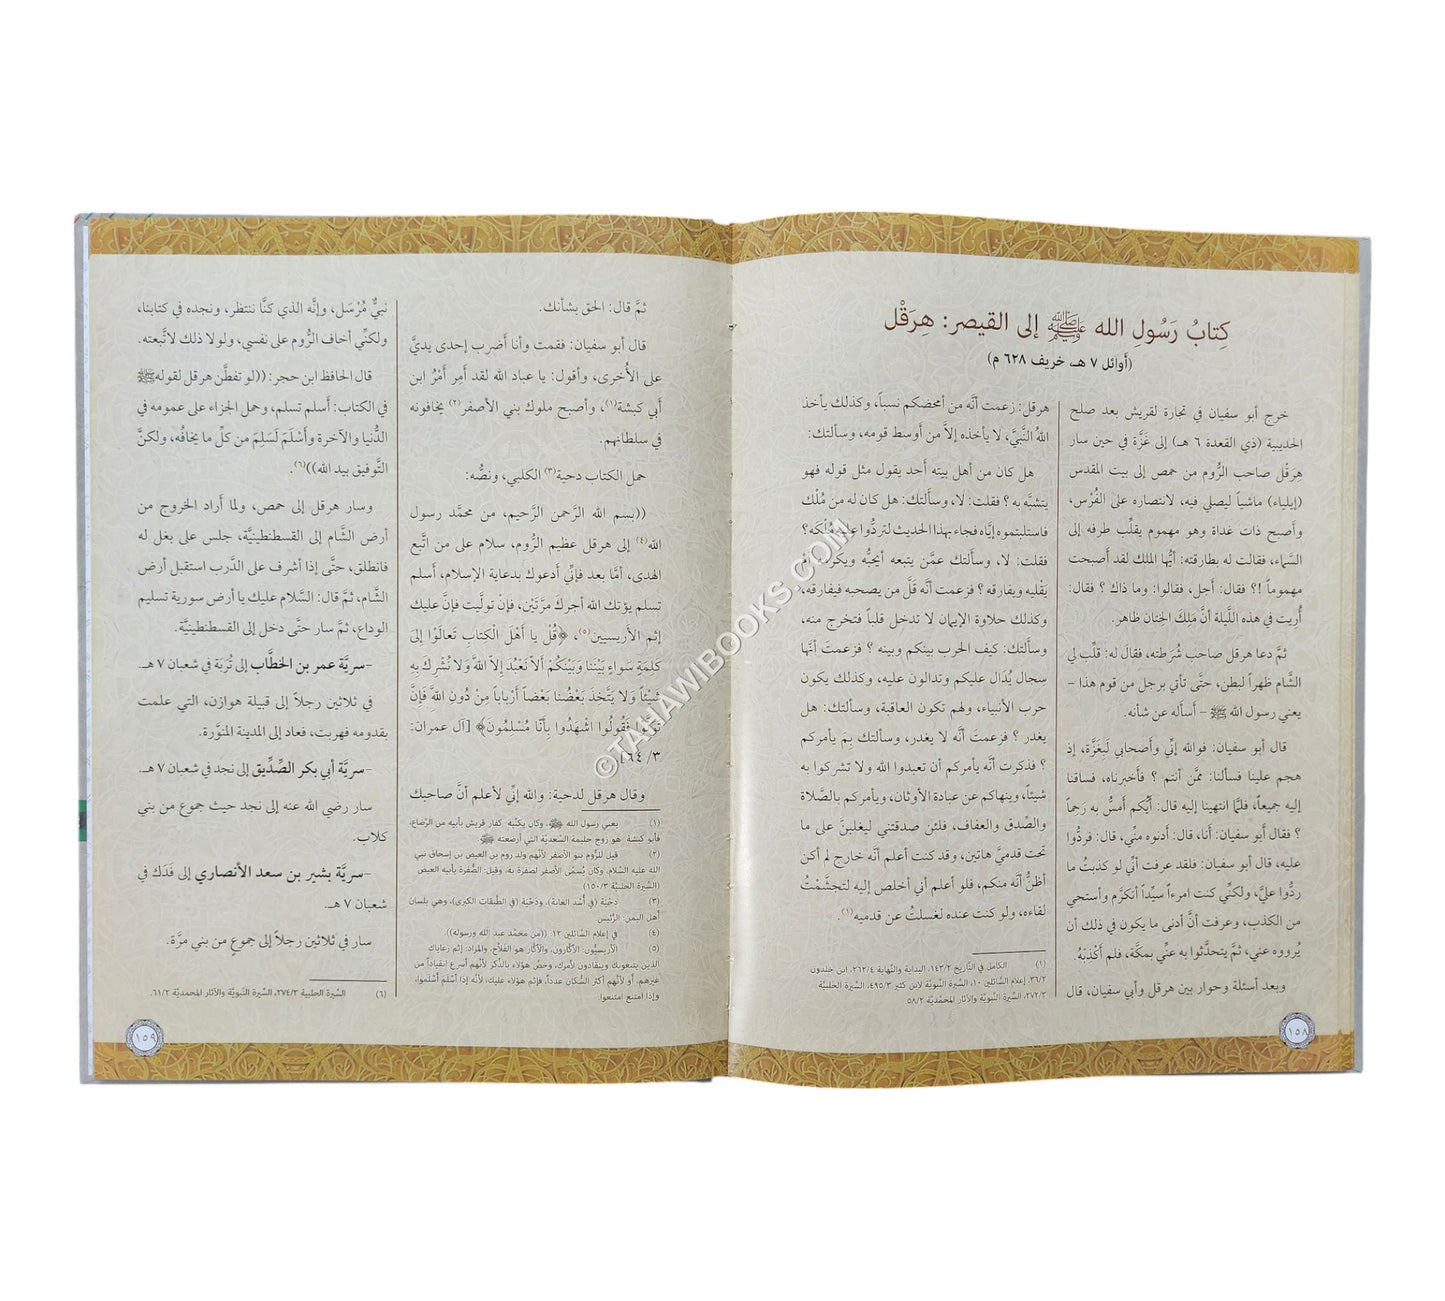 كِتابُ رَسُولِ الله ﷺ إلى القيصر: هِرَقْل
(أوائل ٧ هـ، خريف ٦٢٨ م)
خرج أبو سفيان في تجارة لقريش بعد صلح
الحديبية (ذي القعدة ٦ هـ) إلى غَزَّة في حين سار
هِرَقْل صاحب الرُّوم من حمص إلى بيت المقدس
(إيلياء) ماشياً ليصلي فيه، لانتصاره على الفُرْس،
وأصبح ذات غداة وهو مهموم يقلِّب طرفه إلى
السَّماء، فقالت له بطارقته: أيُّها الملك لقد أصبحت
مهموماً !؟ فقال: أجل، فقالوا: وما ذاك ؟ فقال:
أُريت في هذه اللَّيلة أنَّ مَلِكَ الخِتان ظاهر.
ثمَّ دعا هرقل صاحب شُرَطته، فقال له: قلِّب لي
الشَّام ظهراً لبطن، حتَّى تأتي برجل من قوم هذا –
يعني رسول الله ﷺ – أسأله عن شأنه.
قال أبو سفيان: فوالله إنِّي وأصحابي لَبِغَزَّة، إذ
هجم علينا فسألنا: ممَّن أنتم ؟ فأخبرناه، فساقنا
إليه جميعاً، فلمَّا انتهينا إليه قال: أيُّكم أمسُّ به رَحِماً
؟ فقال أبو سفيان: أنا، قال: أدنوه منِّي، قال: فردُّوا
عليه، قال أبو سفيان: فلقد عرفت أنِّي لو كذبتُ ما
ردُّوا عليَّ، ولكنِّي كنت امرءاً سيِّداً أتكرَّم وأستحي
من الكذب، وعرفت أنَّ أدنى ما يكون في ذلك أن
يُرووه عني، ثمَّ يتحدَّثوا به عنِّي بمكَّة، فلم أَكْذِبْهُ.
وبعد أسئلة وحوار بين هرقل وأبي سفيان، قال
هرقل: زعمت أنَّه من أمحضكم نسباً، وكذلك يأخذ
اللهُ النَّبيَّ، لا يأخذه إلاَّ من أوسط قومه، وسألتك:
هل كان من أهل بيته أحد يقول مثل قوله فهو
يتشبَّه به ؟ فقلت: لا، وسألتك: هل كان له من مُلْك
فاستلبتموه إيَّاه فجاء بهذا الحديث لتردُّوا عليه مُلْكه ؟
فقلت: لا، وسألتك عمَّن يتبعه أيحبُّه ويكرمه أم
يَقْليه ويفارقه ؟ فزعمت أنَّه قَلَّ من يصحبه فيفارقه،
وكذلك حلاوة الإيمان لا تدخل قلباً فتخرج منه،
وسألتك: كيف الحرب بينكم وبينه ؟ فزعمت أنَّها
سجال يُدَال عليكم وتدالون عليه، وكذلك يكون
حرب الأنبياء، ولهم تكون العاقبة، وسألتك: هل
يغدر ؟ فزعمتَ أنَّه لا يغدر، وسألتك بِمَ يأمركم
؟ فذكرت أنَّه يأمركم أن تعبدوا الله ولا تشركوا به
شيئاً، وينهاكم عن عبادة الأوثان، ويأمركم بالصَّلاة
والصِّدق والعفاف، فلئن صدقتني ليغلبنَّ على ما
تحت قدميَّ هاتين، وقد كنت أعلم أنَّه خارج لم أكن
أظنُّ أنَّه منكم، فلو أعلم أني أخلص إليه لتجشَّمْتُ
لقاءه، ولو كنت عنده لغسلتُ عن قدميه(١).
(١) الكامل في التَّاريخ ١٤٣/٢، البداية والنِّهاية ٢٦٣/٤، ابن خلدون
٣٦/٢، إعلام السَّائلين ١٠، السِّيرة النَّبويَّة لابن كثير ٤٩٥/٣، السِّيرة الحلبيَّة
٢٧٢/٣، السِّيرة النَّبويَّة والآثار المحمَّديَّة ٥٨/٢
١٥٨
ثمَّ قال: الحق بشأنك.
قال أبو سفيان: فقمت وأنا أضرب إحدى يديَّ
على الأُخرى، وأقول: يا عباد الله لقد أَمِر أَمْرُ ابن
أبي كبشة(١)، وأصبح ملوك بني الأصفر(٢) يخافونه
في سلطانهم.
حمل الكتاب دحية(٣) الكلبي، ونصُّه:
((بسم الله الرَّحمن الرَّحيم، من محمَّد رسول
الله(٤) إلى هرقل عظيم الرُّوم، سلام على من اتَّبع
الهدى، أمَّا بعد فإنِّي أدعوك بدعاية الإسلام، أسلم
تسلم يؤتك الله أجرك مرَّتَيْن، فإنْ تولَّيت فإنَّ عليك
إثم الأريسيين(٥)، ﴿قُلْ يا أَهْلَ الْكِتابِ تَعالَوْا إِلىَ
كلِمَةٍ سَواءٍ بَيْنَنا وَبَيْنَكُمْ أَلاَّ نَعْبُدَ إِلاَّ اللهَ وَلا نُشْرِكَ بِهِ
شَيْئاً وَلا يَتَّخِذَ بَعْضُنا بَعْضاً أَرْباباً مِنْ دُونِ اللهِ فَإِنْ
تَوَلَّوْا فَقُولُوا اشْهَدُوا بِأَنَّا مُسْلِمُونَ﴾ [آل عمران:
٣/ ٦٤]
وقال هرقل لدحية: والله إنِّي لأعلم أنَّ صاحبك
(١) يعني رسول الله ﷺ، وكان يكنِّيه كفار قريش بأبيه من الرَّضاع،
فأبو كبشة هو زوج حليمة السَّعديَّة التي أرضعته ﷺ
(٢) قيل للرُّوم بنو الأصفر لأنَّهم ولد روم بن العيص بن إسحاق نبي
الله عليه السَّلام، وكان يُسمَّى الأصفر لصفرة به، وقيل: الصُّفرة بأبيه العيص
(السِّيرة الحلبيَّة ١٥٠/٣)
(٣) دحْيَة (في أُسْد الغابة)، ودَحْيَة (في الطَّبقات الكبرى)، وهي بلسان
أهل اليمن: الرَّئيس
(٤) في إعلام السَّائلين ١٢، ((من محمَّد عبد الله ورسوله)).
(٥) الأريسيُّون: الأكَّارون، والأكَّار هو الفلاَّح، والمراد: إثم رعاياك
الذين يتبعونك وينقادون لأمرك، وخصَّ هؤلاء بالذِّكر لأنَّهم أسرع انقياداً من
غيرهم، أو لأنَّهم أكثر السُّكان عدداً، فإثم هؤلاء عليك، لأنَّه إذا أَسْلَمَ أَسْلَموا،
وإذا امتنع امتنعوا.
نبيٌّ مُرْسَل، وإنَّه الذي كنَّا ننتظر، ونجده في كتابنا،
ولكنِّي أخاف الرُّوم على نفسي، ولولا ذلك لاتَّبعته.
قال الحافظ ابن حجر: ((لو تفطَّن هرقل لقولهﷺ
في الكتاب: أسلم تسلم، وحمل الجزاء على عمومه في
الدُّنيا والآخرة وأَسْلَمَ لَسَلِمَ من كلِّ ما يخافُه، ولكنَّ
التَّوفيق بيد الله))(٦).
وسار هرقل إلى حمص، ولما أراد الخروج من
أرض الشَّام إلى القسطنطينيَّة، جلس على بغل له
فانطلق، حتَّى إذا أشرف على الدَّرب استقبل أرض
الشَّام، ثمَّ قال: السَّلام عليك يا أرض سورية تسليم
الوداع، ثمَّ سار حتَّى دخل إلى القسطنطينيَّة.
-سريَّة عمر بن الخطَّاب إلى تُرَبَة في شعبان ٧ هـ.
في ثلاثين رجلاً إلى قبيلة هوازن، التي علمت
بقدومه فهربت، فعاد إلى المدينة المنوَّرة.
-سريَّة أبي بكر الصِّدِّيق إلى نجد في شعبان ٧ هـ.
سار رضي الله عنه إلى نجد حيث جموع من بني
كلاب.
-سريَّة بشير بن سعد الأنصاري إلى فَدَكَ في
شعبان ٧ هـ.
سار في ثلاثين رجلاً إلى جموعٍ من بني مرَّة.
(٦) السِّيرة الحلبية ٢٧٤/٣، السِّيرة النَّبويَّة والآثار المحمديَّة ٦١/٢.
١٥٩
©TAHAWIBOOKS.COM